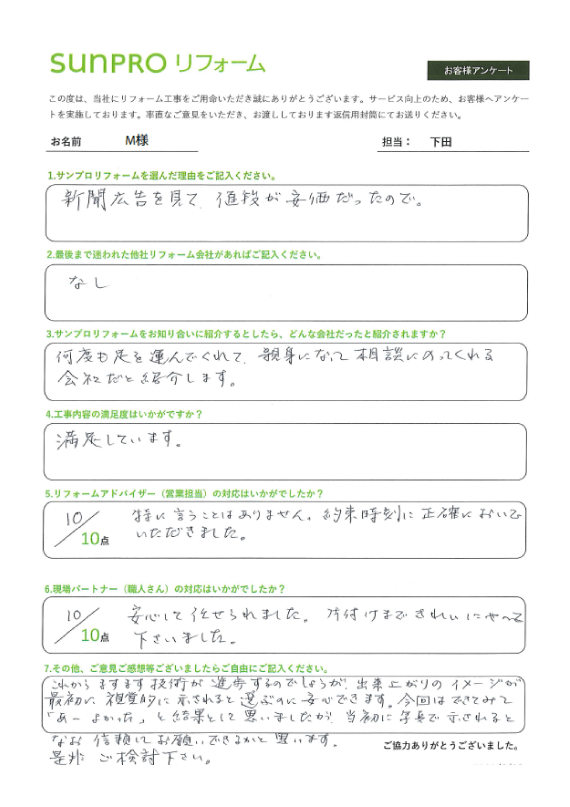 sunpro リフォーム
お客様アンケート
この度は、当社にリフォーム工事をご用命いただき誠にありがとうございます。サービス向上のため、お客様へアンケー
トを実施しております。率直なご意見をいただき、お渡ししております返信用封筒にてお送りください。
お名前 M様 担当： 下田
1.サンプロリフォームを選んだ理由をご記入ください。
新聞広告を見て、値段が安価だったので。
2.最後まで迷われた他社リフォーム会社があればご記入ください。
なし
3.サンプロリフォームをお知り合いに紹介するとしたら、どんな会社だったと紹介されますか？
何度も足を運んでくれて、親身になって相談にのってくれる
会社だと紹介します。
4.工事内容の満足度はいかがですか？
満足しています。
5.リフォームアドバイザー（営業担当）の対応はいかがでしたか？
10/10点 特に言うことはありません。約束時刻に正確においで
いただきました。
6.現場パートナー（職人さん）の対応はいかがでしたか？
10/10点 安心して任せられました。片付けまできれいにやって
下さいました。
7.その他、ご意見ご感想等ございましたらご自由にご記入ください。
これからますます技術が進歩するのでしょうが、出来上がりのイメージが
最初に視覚的に示されると選ぶのに安心できます。今回はできてみて
「あー よかった」と結果として思いましたが、当初に写真で示されると
なお信頼してお願いできるかと思います。
是非ご検討下さい。
ご協力ありがとうございました。